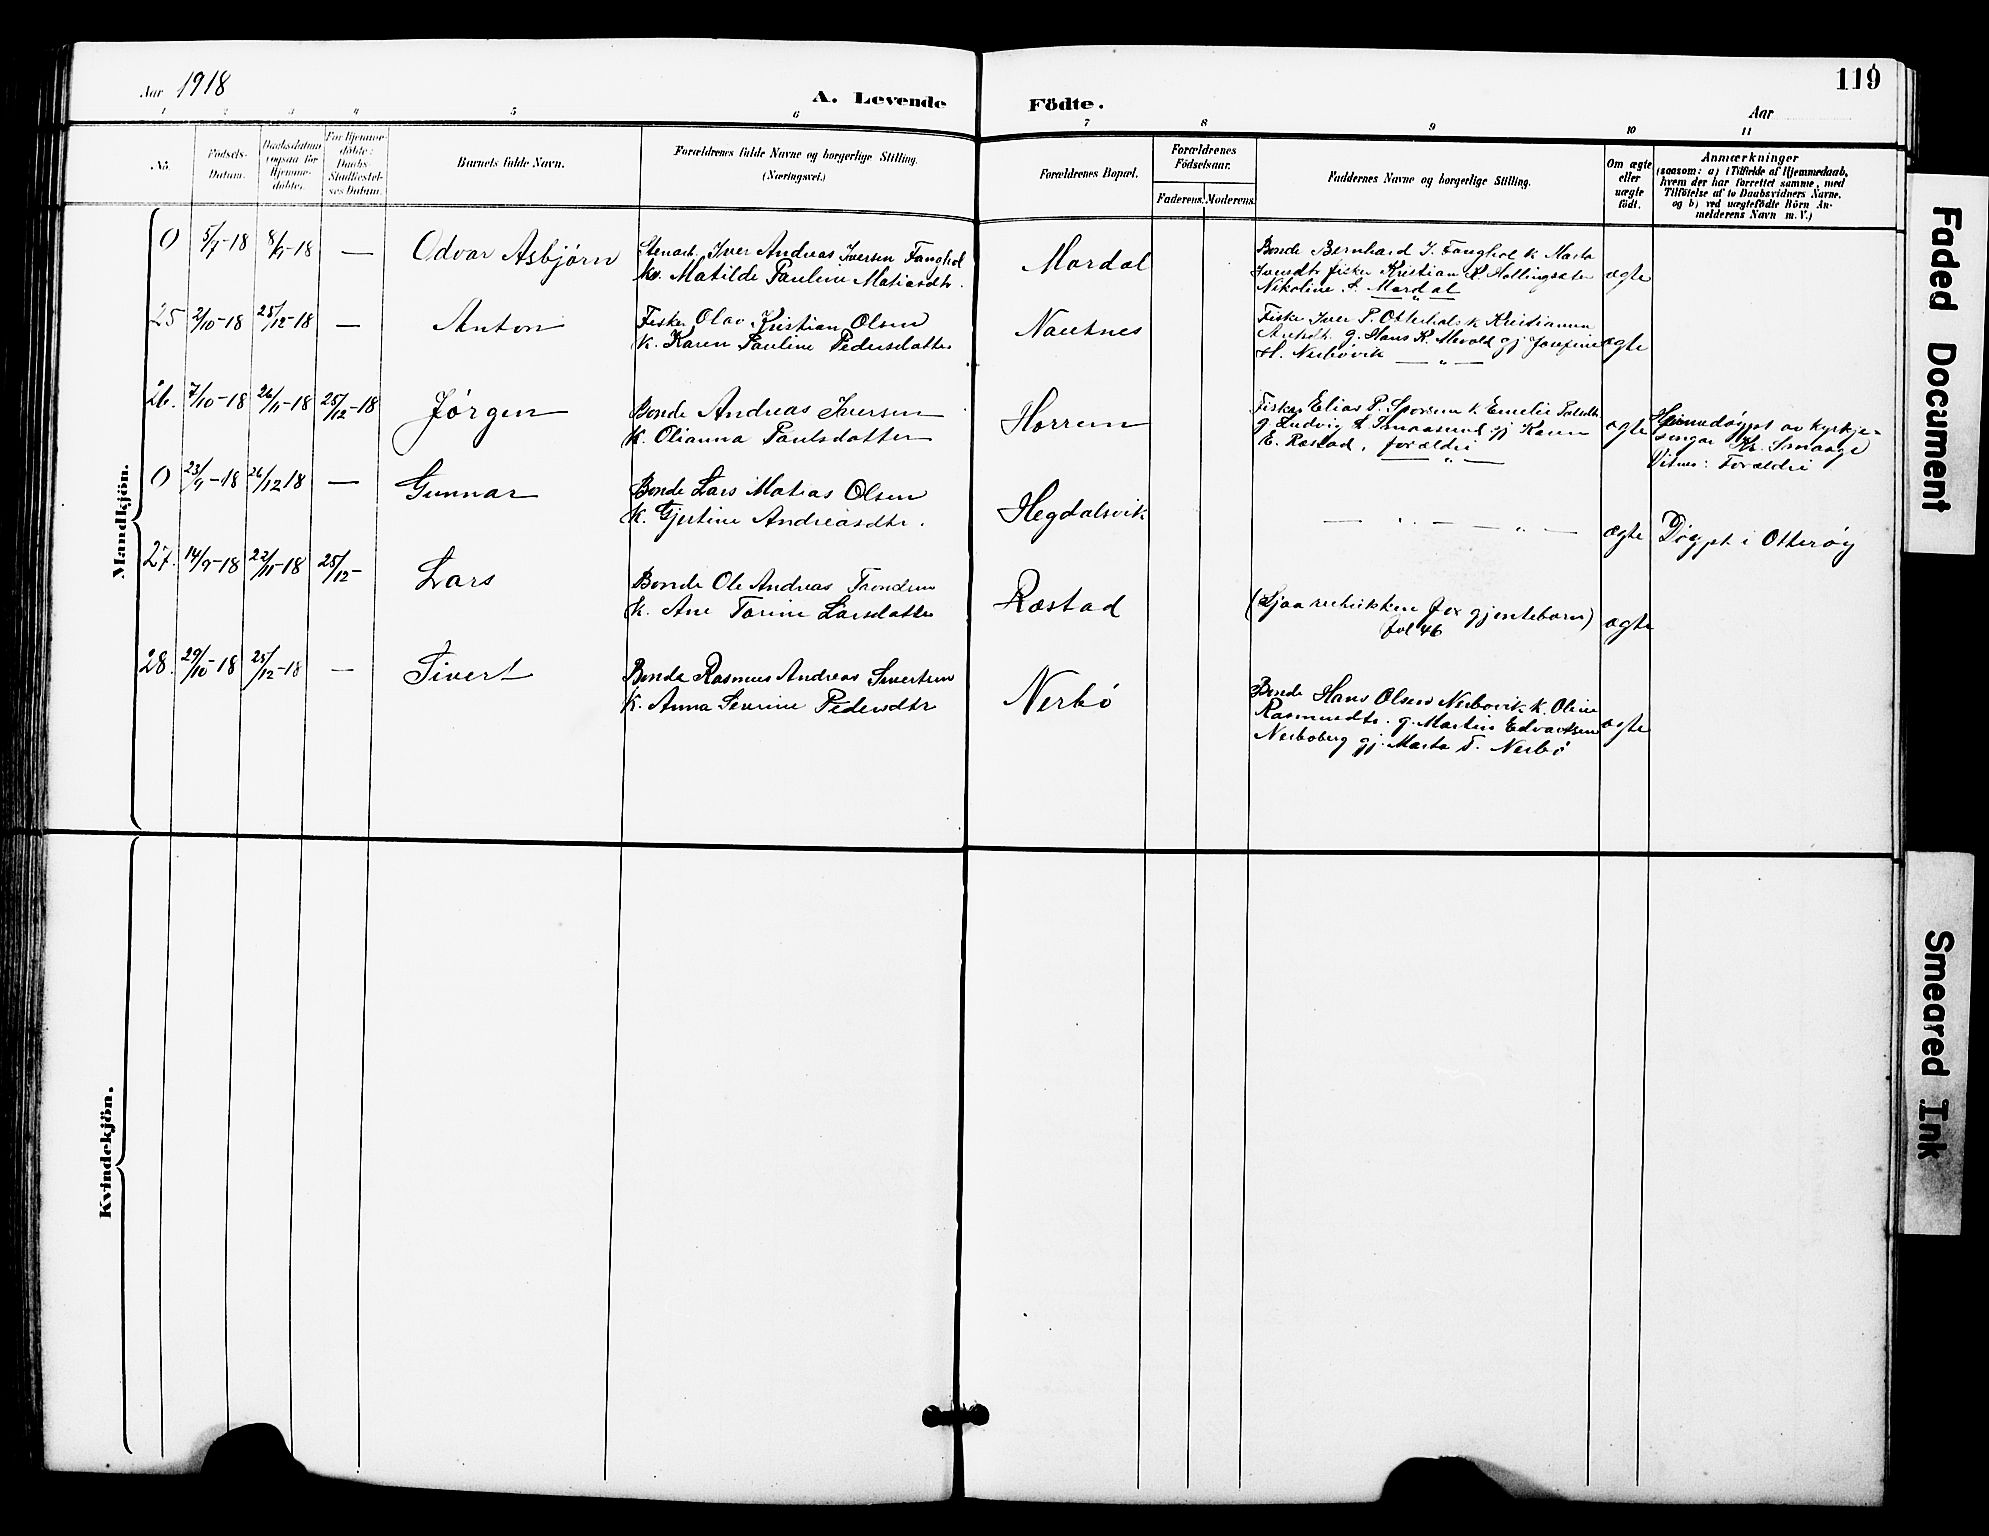 Aar 1918
A. Levende Födte.
Aar
119
1 2 3 4 5 6 7 8 9 10 11
No.
Födsels-
Datum.
Daabsdatum
(ogsaa for
Hjemme-
döbte.
For Hjemme-
döbte:
Daabs-
Stadfæstel-
ses Datum.
Barnets fulde Navn.
Forældrenes fulde Navne og borgerlige Stilling.
(Næringsvei.)
Forældrenes Bopæl.
Forældrenes
Födselsaar.
Faderens. Moderens.
Faddernes Navne og borgerlige Stilling.
Om ægte
eller
uægte
födt.
Anmærkninger
(saasom: a) i Tilfælde af Hjemmedaab,
hvem der har forrettet samme, med
Tilföielse af to Daabsvidners Navne.
og b) ved uægtefödte Börn An-
melderens Navn m. V.)
Mandkjön.
0 8/9-18 — Odvar Asbjørn
Iver Andreas Iversen Fanghol
Matilde Pauline Matiasdtr.
Mordal
Bonde Bernhard I. Fanghol k. Marta
fisker Kristian
Nikoline Mordal
ægte
25 2/10-18 25/12-18 — Anton
Fisker Olav Kristian Olsen
k. Karen Pauline Pedersdatter
Nautnes
Fisker Iver P. Otterhals k. Kristianna
g. Hans K. gj Josefine
H. Nerbøvik — " —
ægte
26. 7/10-18 26/11-18 25/12-18 Jørgen
Bonde Andreas Iversen
k. Olianna Paulsdatter
Horrem
Fisker Elias P. k. Emelie
g. Ludvig gj Karen
E. Ræstad, forældri
— " —
ægte
Heimedøypt av kyrkje-
sengar Kr. Smaage
Vitner: Foreldri
0 26/12 18 — Gunnar
Bonde Lars Matias Olsen
k. Gjertine Andreasdtr.
Hegdalsvik
— " — — " —
ægte
Døypt i Otterøy
27. 14/9-18 22/11-18 25/12- Lars
Bonde Ole Andreas
k. Ane Larsdatter
Ræstad
(Sjaa rubrikken for gjentebarn)
fol 46
ægte
28. 29/10-18 25/12-18 — Sivert
Bonde Rasmus Andreas Sivertsen
k. Anna Severine Pedersdtr
Nerbö
Bonde Hans Olsen Nerbovik k. Oline
Rasmusdtr. g. Martin Edvardsen
Nerboberg gj. Marta Nerbö
ægte
Kvindekjön.
Faded Document
Smeared Ink